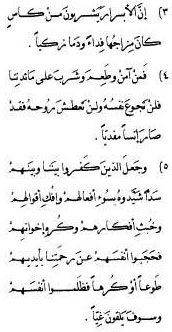 ٣) إنّ الأبرار يشربون من كأس
كان مزاجها فداءً ودما زكيا ً.
٤) فمن آمن وطعم وشرب على مائدتنا
فلن تجوع نفسه ولن تعطش روحه فقد
صار إنساً مفديّاً .
٥) وجعل الذين كفروا بيننا وبينهم
سدّاً شيّدوه بسوء أفعالهم وإفك أقوالهم
وخبث أفكارهم وكره إخوانهم
فحجبوا أنفسهم عن رحمتنا بأيديهم
طوعاً أو كرهاً فظلموا أنفسهم
وسوف يلقون غيّاً .